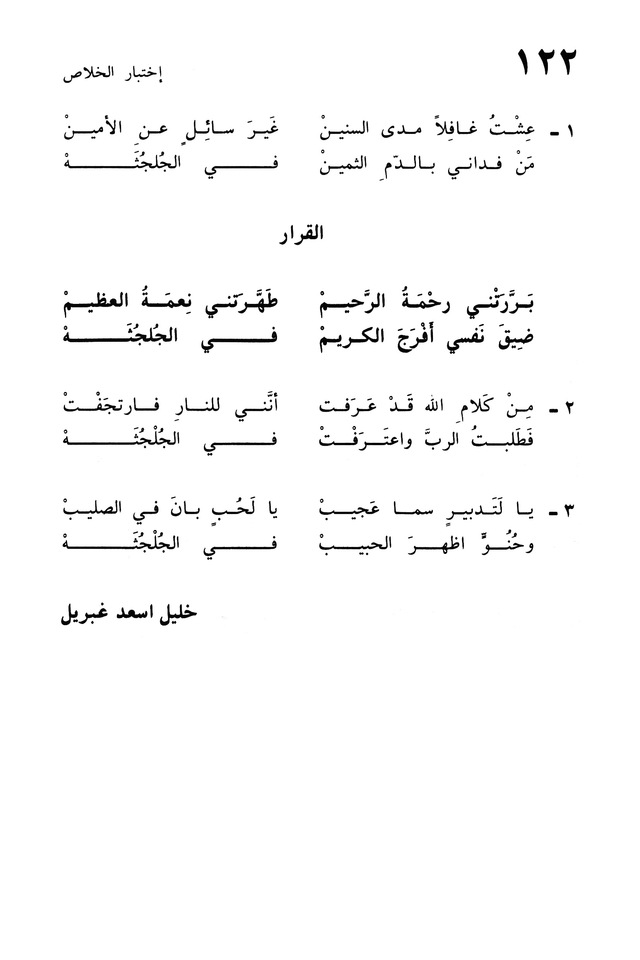 ١٢٢
إختبار الخلاص
١ - عِشْتُ غافِلاً مدى السنينْ غَيرَ سائِلٍ عنِ الأمينْ
مَنْ فداني بالدّمِ الثمينْ في الجُلجُثَهْ
القرار
بَرَّرَتْني رحْمَةُ الرَّحيمْ طَهَّرَتني نِعمَةُ العظيمْ
ضِيقَ نَفسي أفْرَجَ الكريمْ في الجُلجُثَهْ
٢ - مِنْ كَلامِ الله قَدْ عَرَفت أنَّني للنارِ فارتجَفْتْ
فَطَلبتُ الربَّ واعتَرَفْتْ في الجُلْجُثَهْ
٣ - يا لَتَدبيرٍ سما عَجيبْ يا لَحُبٍ بانَ في الصليبْ
وحُنُوٍّ اظهرَ الحبيبْ في الجُلْجُثَهْ
خليل اسعد غبريل